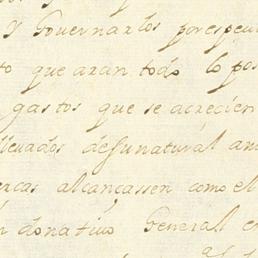 y Governarlos por espe
to que aran todo lo pos
gastos que se acrecien
llevados de su natural am
ercas alcancassen como el
n donativo General e